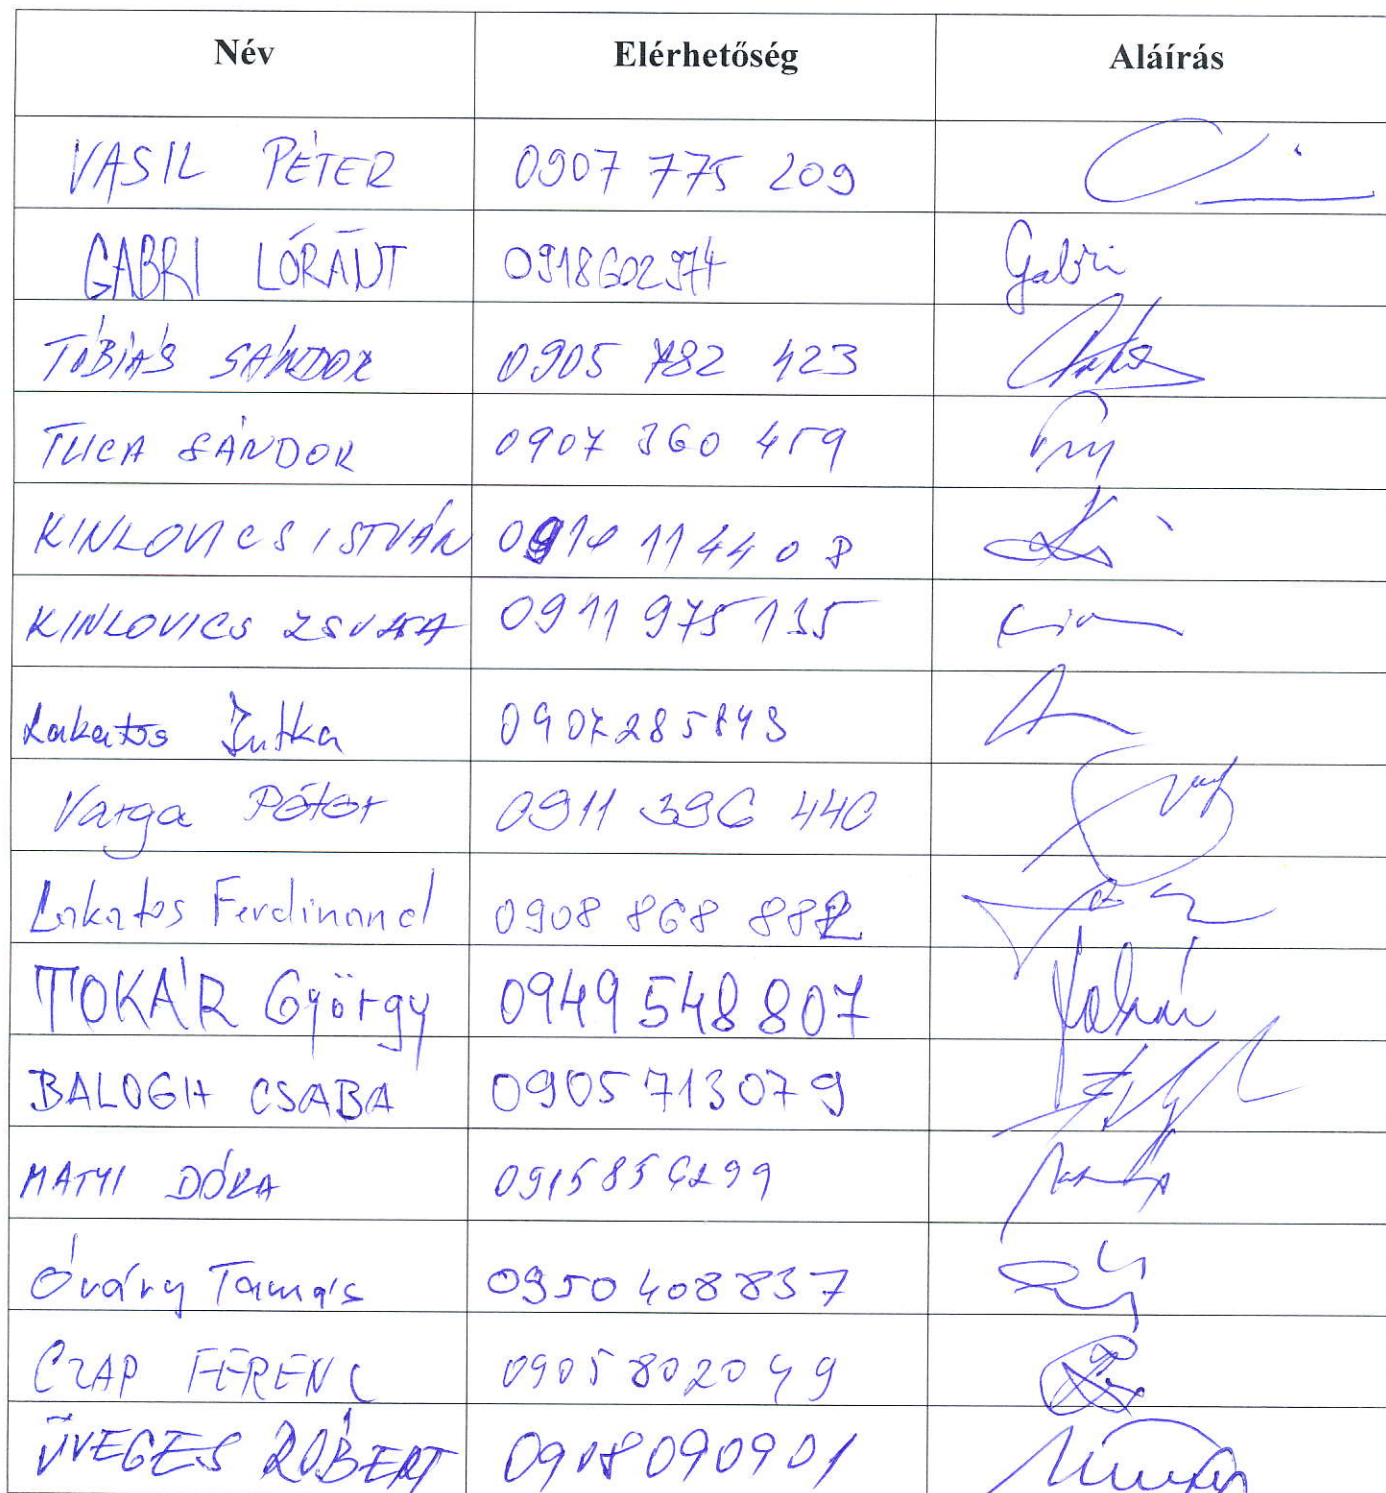 Név Elérhetőség Aláírás
VASIL PÉTER 0907 775 209
GABRI LÓRÁNT 0918602974 Gabri
TÓBIÁS SÁNDOR 0905 782 423
TUCA SÁNDOR 0907 360 459
KINLOVICS ISTVÁN 0910 114408
KINLOVICS 0911 975 135
Lakatos Jutka 0907285843
Varga Péter 0911 396 440
Lakatos Ferdinand 0908 868 882
TOKÁR György 0949 548 807 Tokár
BALOGH CSABA 0905 713079
MATYI DÓRA 0915856299
Óváry Tamás 0950 408837
CZAP FERENC 0905 802049
ÜVEGES RÓBERT 0908090901